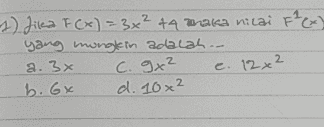 1) Jika F(x) = 3x² + 4 maka nilai F¹(x)
yang mungkin adalah...
a. 3x c. 9x² e. 12x²
b. 6x d. 10x²